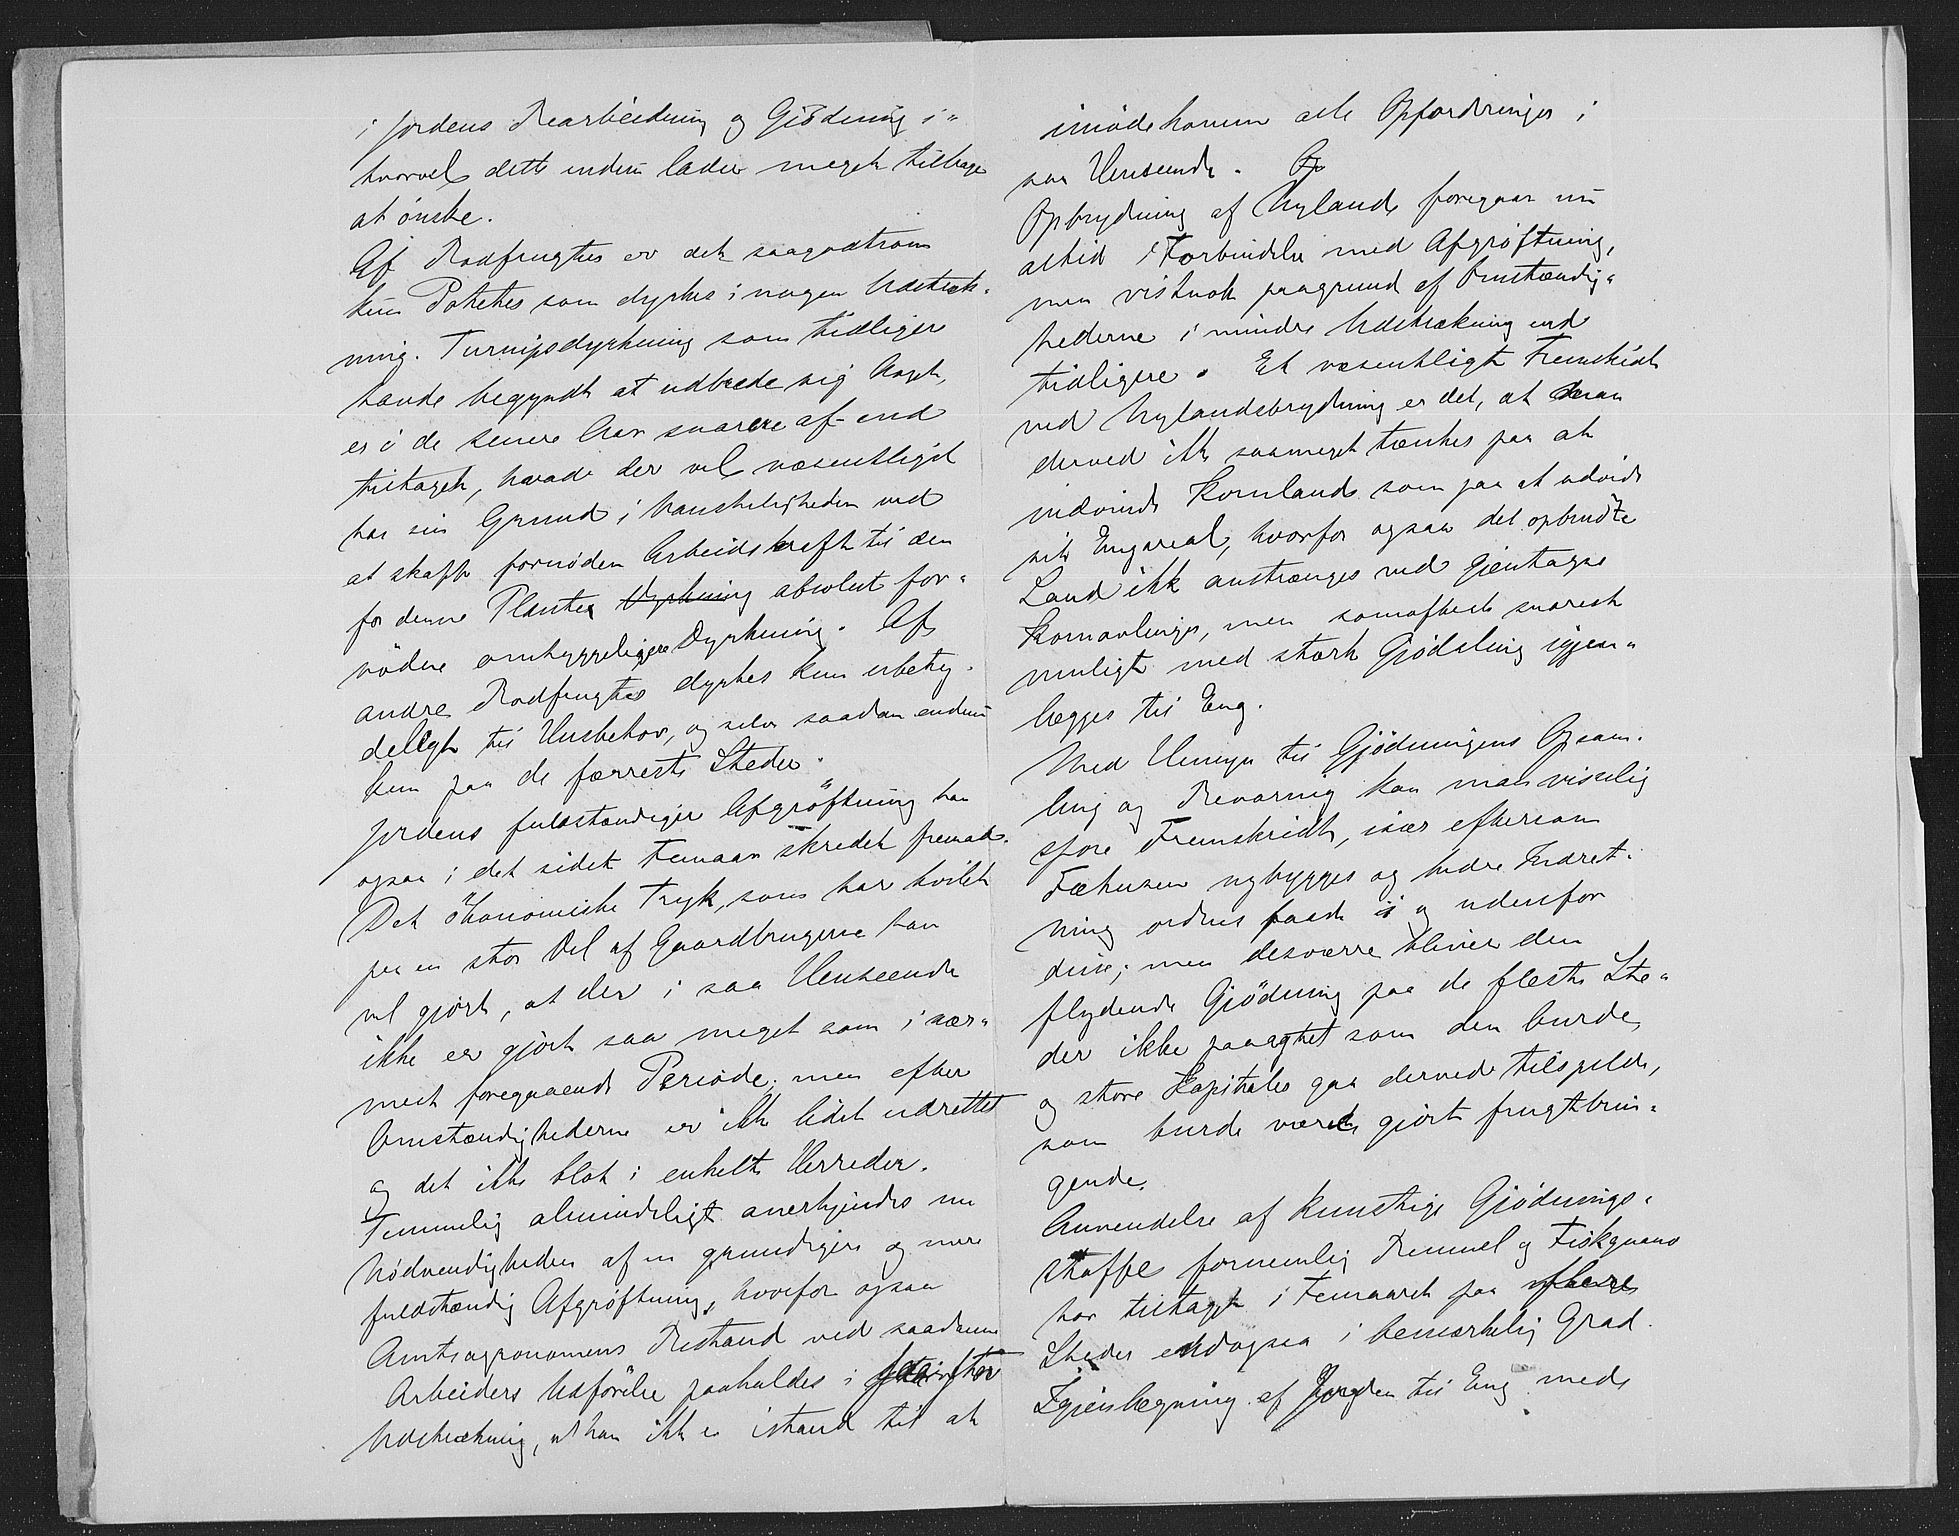 i Jordens Bearbeidning og Gjödning i"
hvorvel dette endnu lader meget tilbage
at ønske.
Af Rodfrugter er det saagodtsom
kun Poteter som dyrkes i nogen Udstræk-
ning. Turnipsdyrkning som tidligere
havde begyndt at udbrede sig noget,
er i de senere Aar snarere af- end
tiltaget, hvade der vel væsentligst
har sin Grund i Vanskeligheden ved
at skaffe fornøden Arbeidskraft til den
for denne Plantes Dyrkning absolut for-
nödne omhyggeligere Dyrkning. Af
andre Rodfrugter dyrkes kun ubety-
deligt til Husbehov, og selv saadan endnu
kun paa de færreste Steder.
Jordens fuldstændiger Afgröftning har
ogsaa i det sidst Femaar skredet fremad.
Det ökonomiske Tryk, som har hvilet
paa en stor Del af Gaardbrugerne har
vel gjort, at der i saa Henseende
ikke er gjort saa meget som i nær-
mest foregaaende Periode; men efter
Omstændighederne er ikke lidet udrettet
og det ikke blot i enkelte Herreder.
Temmelig almindeligt anerkjendes nu
Nødvendigheden af en grundigere og mere
fuldstændig Afgrøftning, hvorfor ogsaa
Amtsagronomens Bistand ved saadanne
Arbeiders Udførelse paakaldes i større
Udstrækning, at han ikke er istand til at
imødekomme alle Opfordringer i
saa Henseende. Op
Opbrydning af Nylande foregaar nu
altid i Forbindelse med Afgrøftning,
men vistnok paagrund af Omstændig-
hederne i mindre Udstrækning end
tidligere. Et væsentligt Fremskridt
ved Nylandsbrydning er det, at man
derved ikke saameget tænkes paa at
indvinde Kornlande som paa at udvide
sit Engareal, hvorfor ogsaa det opbrudte
Land ikk anstrænges ved gjentagne
Kornavlinger, men somoftest snarest
muligt med stærk Gjödsling igjen-
lægges til Eng.
Med Hensyn til Gjödningens Opsam-
ling og Bevaring kan man visselig
spore Fremskridt, især eftersom
Fæhusene nybygges og bedre Indret-
ning ordnes baade i og udenfor
disse; men desværre bliver den
flydende Gjödning paa de fleste Ste-
der ikke paaagtet som den burde,
og store Kapitaler gaa derved tilspilde,
som burde været gjort frugtbrin-
gende.
Anvendelse af kunstige Gjödnings-
stoffe fornemlig Benmel og Fiskguano
har tiltaget i Femaaret paa flere
Steder endogsaa i bemærkelig Grad.
Igjenlægning af Jorden til Eng med